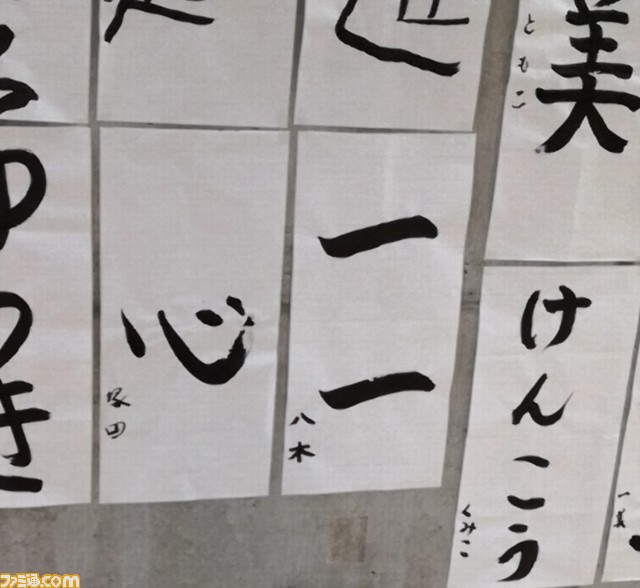 美
ともこ
けんこう
くみこ
一
一
八木
心
塚田
ゆ
つき
ファミ通.com